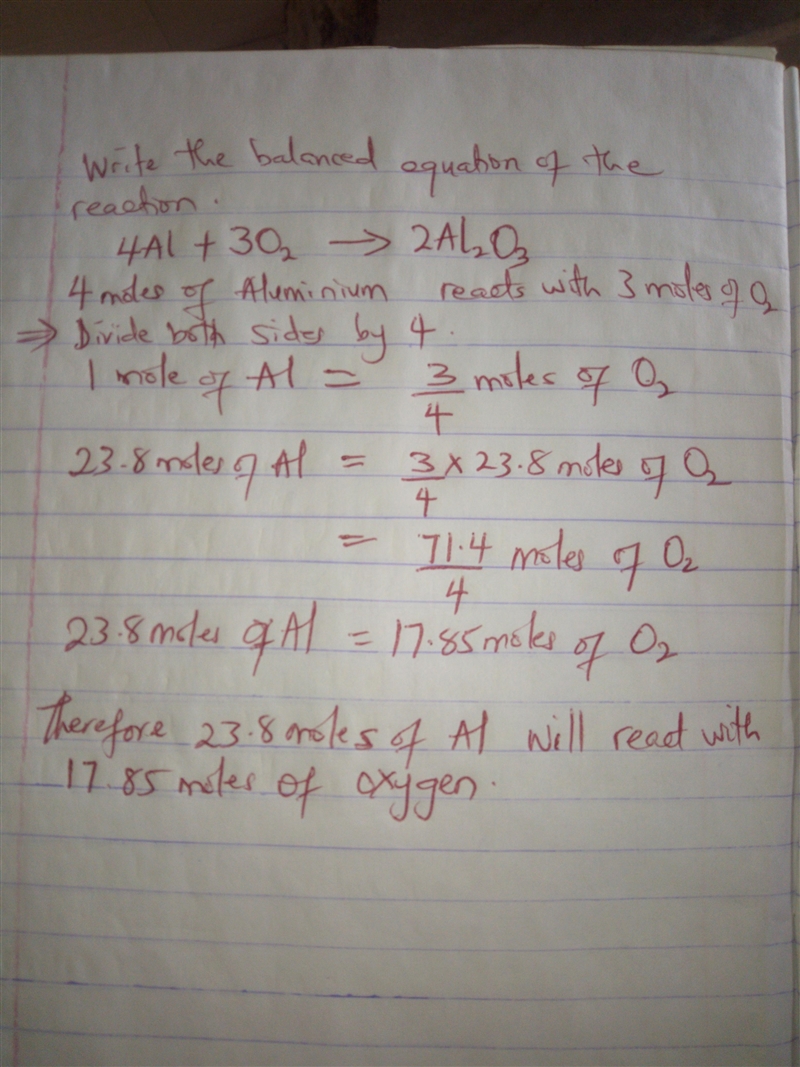 Write the balanced equation of the
reaction.
4Al + 3O₂ → 2Al₂O₃
4 moles of Aluminium reacts with 3 moles of O₂
⇒ Divide both sides by 4.
1 mole of Al = 3/4 moles of O₂
23.8 moles of Al = 3/4 × 23.8 moles of O₂
= 71.4/4 moles of O₂
23.8 moles of Al = 17.85 moles of O₂
Therefore 23.8 moles of Al will react with
17.85 moles of oxygen.